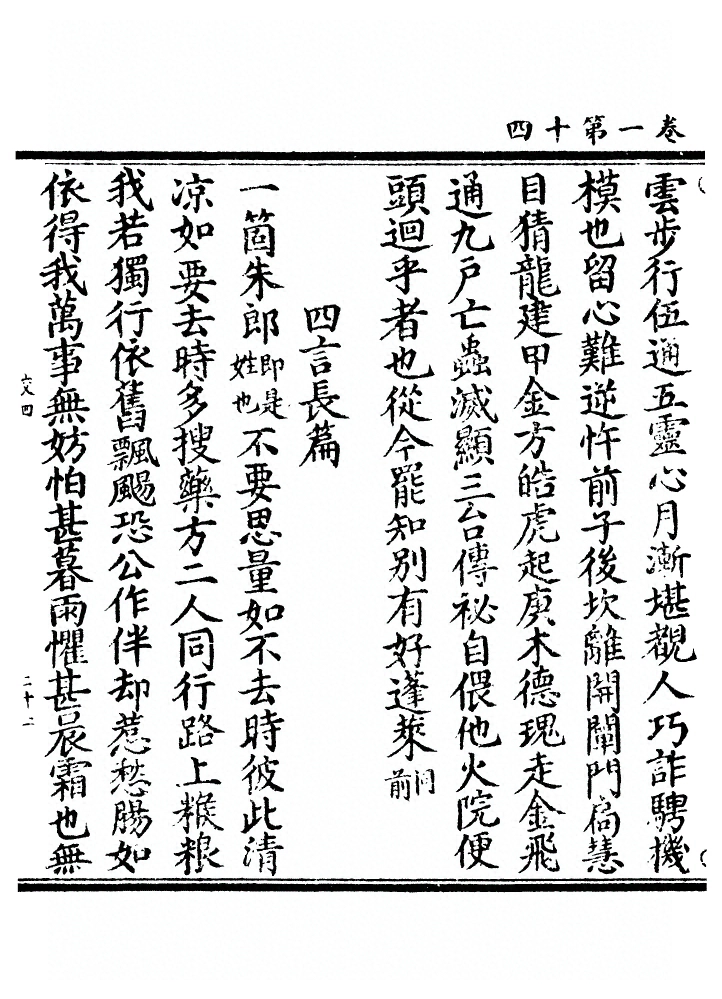 卷一第十四
雲步行伍通五靈心月漸堪觀人巧詐騁機
模也留心難逆忤前子後坎離開闡門扄慧
目猜龍建甲金方皓虎起庚木德瑰走金飛
通九戸亡蟲滅顯三台傳祕自偎他火院便
頭迴乎者也從今罷知別有好蓬萊同前
四言長篇
一箇朱郎即是姓也不要思量如不去時彼此清
凉如要去時多搜藥方二人同行路上糇粮
我若獨行依舊飄颺恐公作伴却惹愁腸如
依得我萬事無妨怕甚暮雨懼甚晨霜也無
交四
二十一